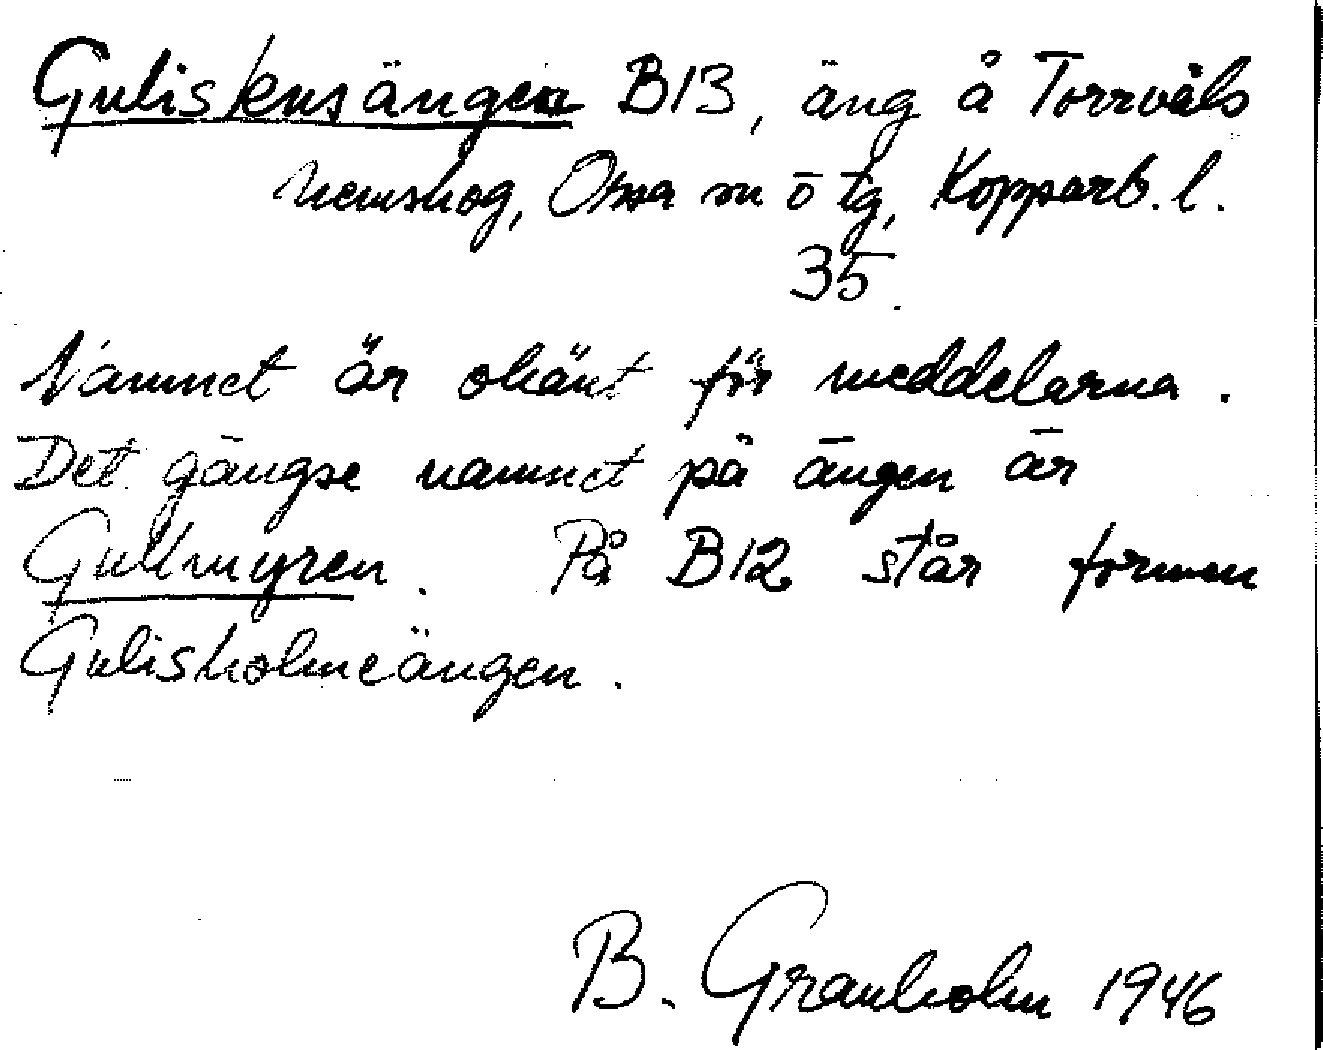 Guliskensängen B13, äng å Torrvåls
hemskog, Orsa sn o tg, Kopparb. l.
35.
Namnet är okänt för meddelarna.
Det gängse namnet på ängen är
Gullmyren. På B12 står formen
Gulisholmeängen.
B. Granholm 1946